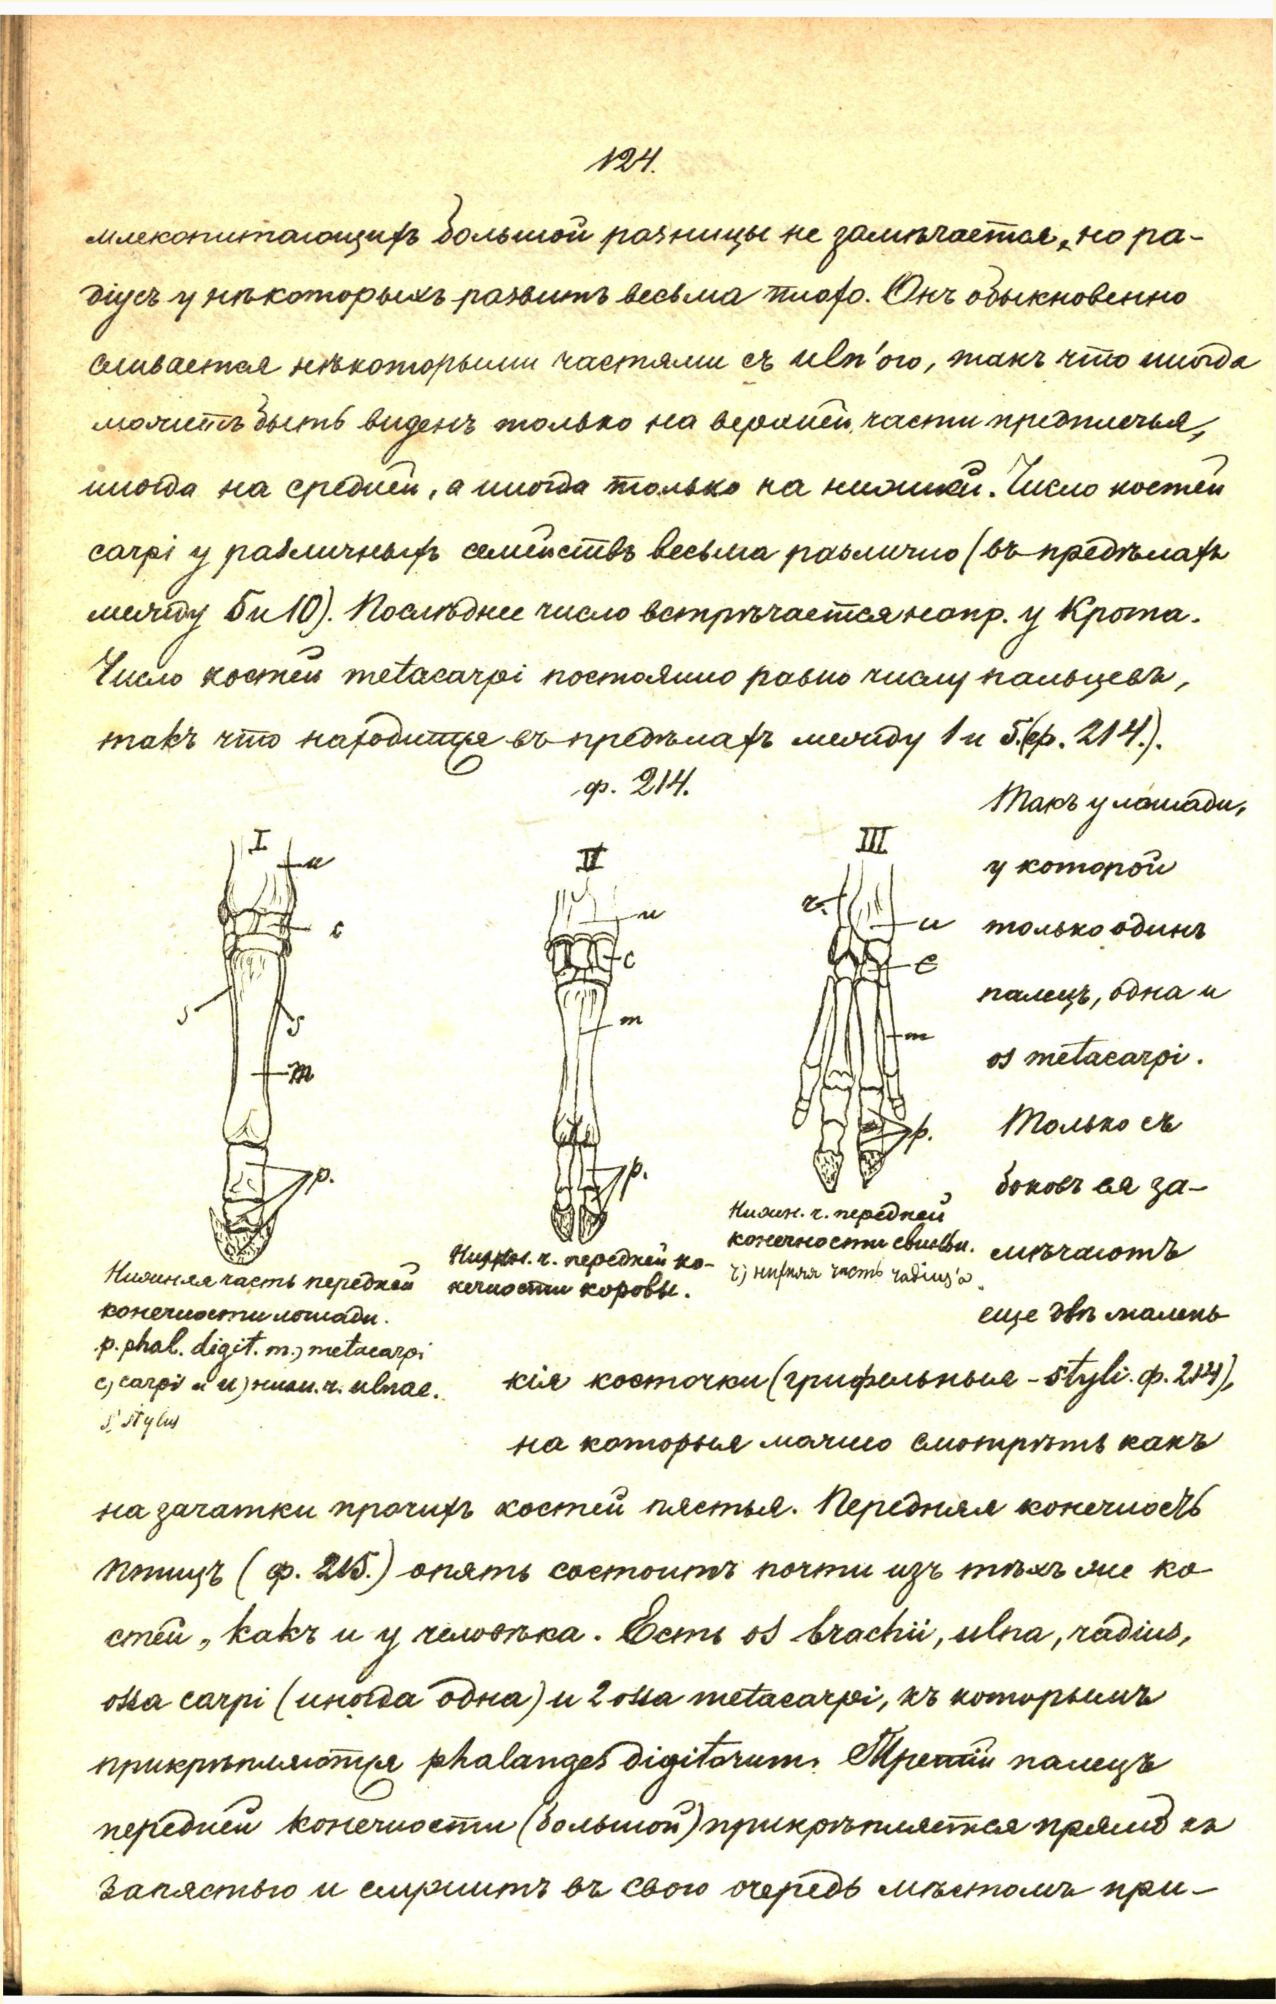 124.
млекопитающихъ большой разницы не замѣчается, но ра-
діусъ у нѣкоторыхъ развитъ весьма плохо. Онъ обыкновенно
сливается нѣкоторыми частями съ uln'ою, такъ что иногда
можетъ быть виденъ только на верхней части предплечья,
иногда на средней, а иногда только на нижней. Число костей
carpi у различныхъ семействъ весьма различно (въ предѣлахъ
между 5 и 10). Послѣднее число встрѣчается напр. у Крота.
Число костей metacarpi постоянно равно числу пальцевъ,
такъ что находится въ предѣлахъ между 1 и 5. (ф. 214.).
ф. 214.
I
u
c
s
s
m
p.
II
u
c
m
p.
III
r.
u
c
m
p.
Нижняя часть передней
конечности лошади.
p. phal. digit. m.) metacarpi
c) carpi и u) нижн. ч. ulnae.
s. stylus
Нижн. ч. передней ко-
нечности коровы.
Нижн. ч. передней
конечности свиньи.
r) нижняя часть radius'а.
Такъ у лошади,
у которой
только одинъ
палецъ, одна и
os metacarpi.
Только съ
боковъ ея за-
мѣчаютъ
еще двѣ малень-
кія косточки (грифельныя - styli. ф. 214),
на которыя можно смотрѣть какъ
на зачатки прочихъ костей пястья. Передняя конечность
птицъ (ф. 215.) опять состоитъ почти изъ тѣхъ же ко-
стей, какъ и у человѣка. Есть os brachii, ulna, radius,
ossa carpi (иногда одна) и 2 ossa metacarpi, къ которымъ
прикрѣпляются phalanges digitorum. Третій палецъ
передней конечности (большой) прикрѣпляется прямо къ
запястью и служитъ въ свою очередь мѣстомъ при-